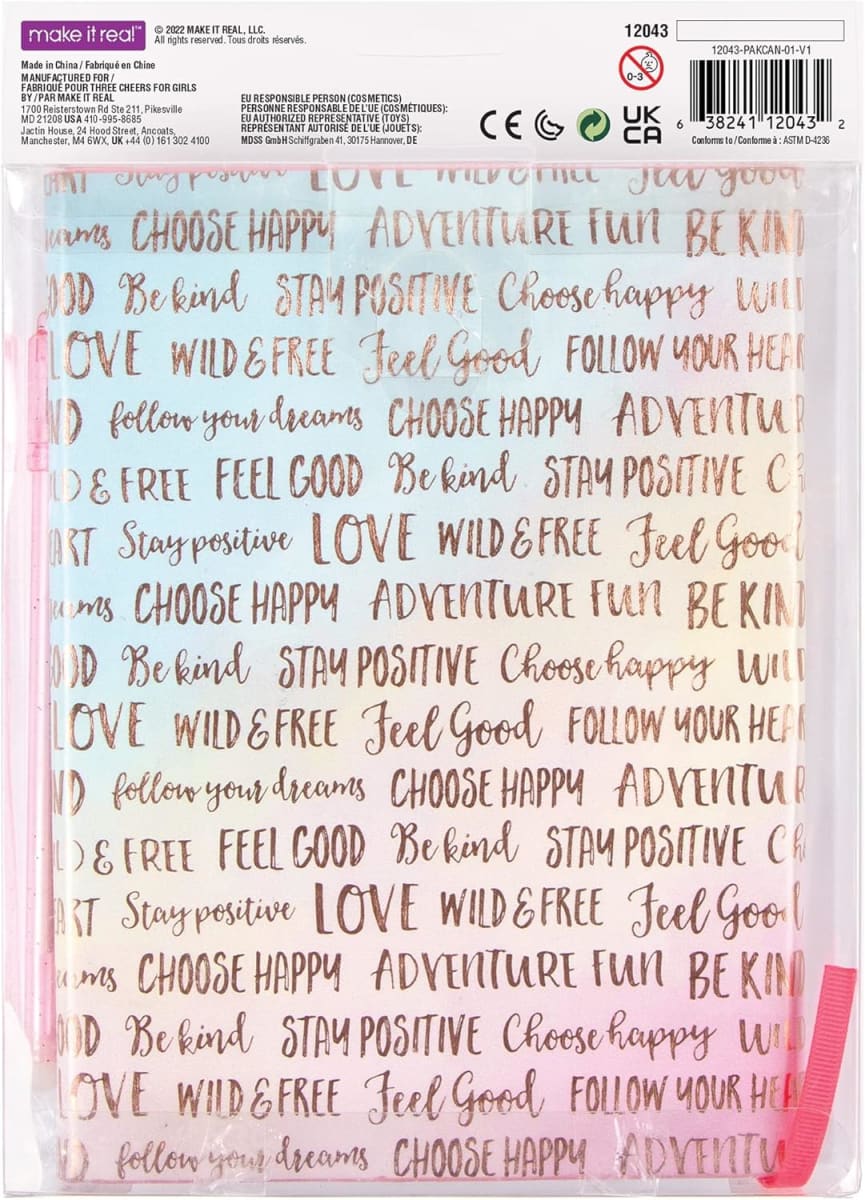 make it real™
© 2022 MAKE IT REAL, LLC.
All rights reserved. Tous droits réservés.
Made in China / Fabriqué en Chine
MANUFACTURED FOR /
FABRIQUÉ POUR THREE CHEERS FOR GIRLS
BY / PAR MAKE IT REAL
1700 Reisterstown Rd Ste 211, Pikesville
MD 21208 USA 410-995-8685
Jactin House, 24 Hood Street, Ancoats,
Manchester, M4 6WX, UK +44 (0) 161 302 4100
EU RESPONSIBLE PERSON (COSMETICS)
PERSONNE RESPONSABLE DE L'UE (COSMÉTIQUES):
EU AUTHORIZED REPRESENTATIVE (TOYS)
REPRÉSENTANT AUTORISÉ DE L'UE (JOUETS):
MDSS GmbH Schiffgraben 41, 30175 Hannover, DE
CE
UK
CA
0-3
12043
12043-PAKCAN-01-V1
6 38241 12043 2
Conforms to / Conforme à : ASTM D-4236
ART Stay positive LOVE WILD & FREE Feel Good
eams CHOOSE HAPPY ADVENTURE FUN BE KIND
OOD Be kind STAY POSITIVE Choose happy WILD
LOVE WILD & FREE Feel Good FOLLOW YOUR HEAR
ND follow your dreams CHOOSE HAPPY ADVENTUR
LD & FREE FEEL GOOD Be kind STAY POSITIVE Ch
ART Stay positive LOVE WILD & FREE Feel Good
eams CHOOSE HAPPY ADVENTURE FUN BE KIND
OOD Be kind STAY POSITIVE Choose happy WILD
LOVE WILD & FREE Feel Good FOLLOW YOUR HEAR
ND follow your dreams CHOOSE HAPPY ADVENTUR
LD & FREE FEEL GOOD Be kind STAY POSITIVE Ch
ART Stay positive LOVE WILD & FREE Feel Good
eams CHOOSE HAPPY ADVENTURE FUN BE KIND
OOD Be kind STAY POSITIVE Choose happy WILD
LOVE WILD & FREE Feel Good FOLLOW YOUR HEA
ND follow your dreams CHOOSE HAPPY ADVENTU